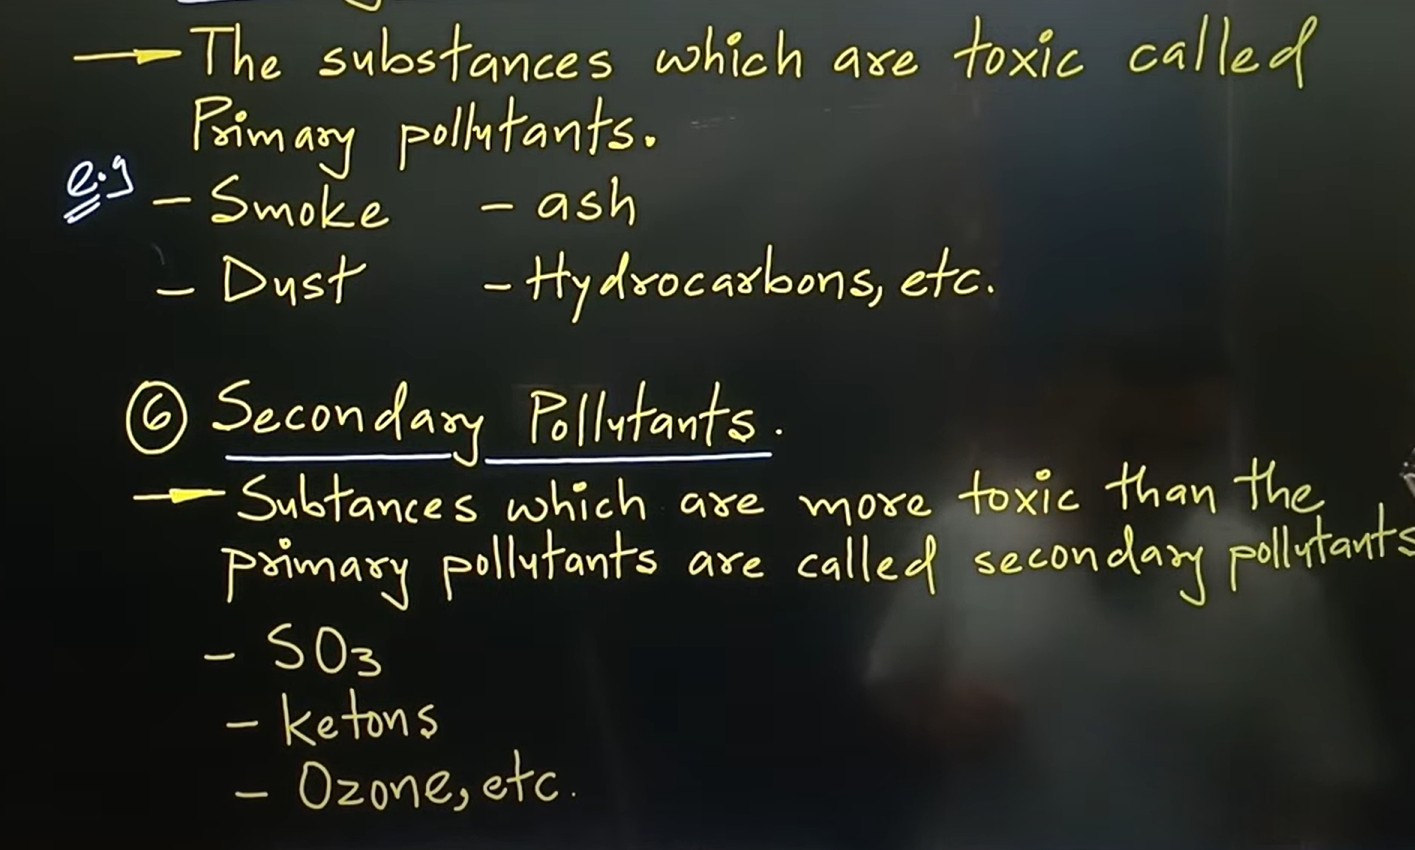 → The substances which are toxic called
Primary pollutants.
e.g - Smoke - ash
- Dust - Hydrocarbons, etc.
⑥ Secondary Pollutants.
→ Subtances which are more toxic than the
primary pollutants are called secondary pollutants
- SO3
- ketons
- Ozone, etc.